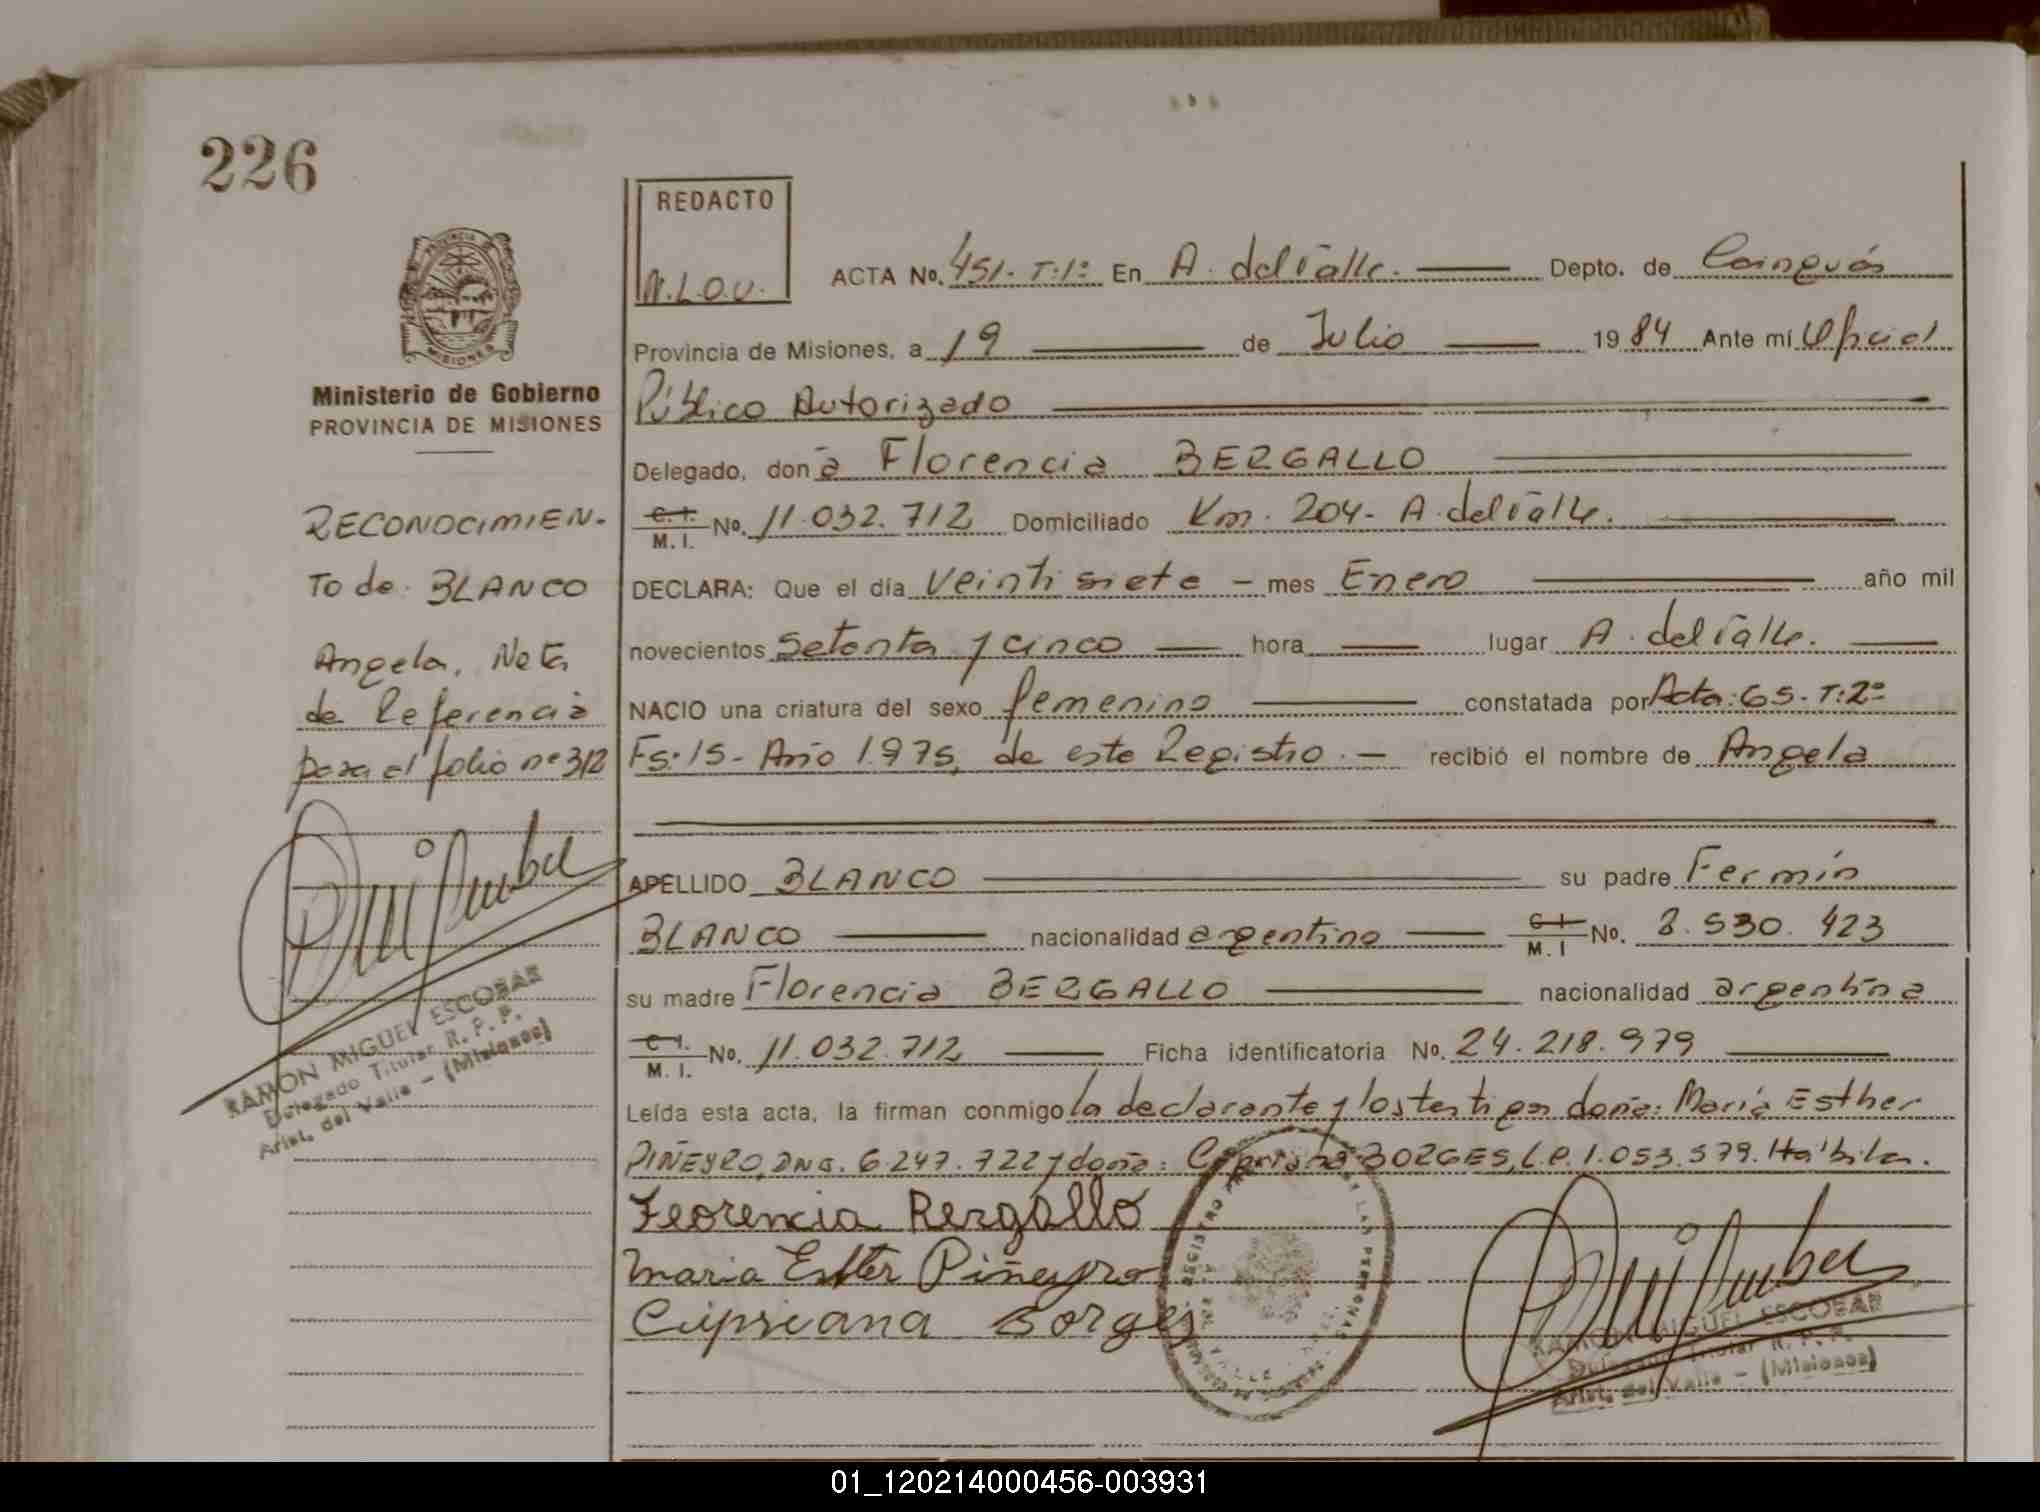 226
REDACTO
N.L.O.V.
PROVINCIA DE
MISIONES
Ministerio de Gobierno
PROVINCIA DE MISIONES
RECONOCIMIEN-
To de: BLANCO
Angela. Nota
de Referencia
para el folio nº 312
RAMON MIGUEL ESCOBAR
Delegado Titular R. P. P.
Arist. del Valle - (Misiones)
ACTA No. 451. T:1º En A. del Valle. Depto. de Cainguás
Provincia de Misiones, a 19 de Julio 1984 Ante mí Oficial
Público Autorizado
Delegado, doña Florencia BERGALLO
C. I. M. I. No. 11.032.712 Domiciliado Km. 204- A. del Valle.
DECLARA: Que el día Veintisiete - mes Enero año mil
novecientos Setenta y cinco hora lugar A. del Valle.
NACIO una criatura del sexo femenino constatada por Acta: 65- T:2º
Fs: 15- Año 1.975, de este Registro.- recibió el nombre de Angela
APELLIDO BLANCO su padre Fermín
BLANCO nacionalidad argentino C. I. M. I No. 8.530.423
su madre Florencia BERGALLO nacionalidad argentina
C. I. M. I. No. 11.032.712 Ficha identificatoria No. 24.218.979
Leída esta acta, la firman conmigo la declarante y los testigos doña: María Esther
PIÑEYRO, DNI. 6.247.722 y doña: Cipriana BORGES, L.C. 1.053.579. Hábiles.
Feorencia Bergallo
Maria Ester Piñeyro
Cipriana Borges
RAMON MIGUEL ESCOBAR
Delegado Titular R. P. P.
Arist. del Valle - (Misiones)
01_120214000456-003931